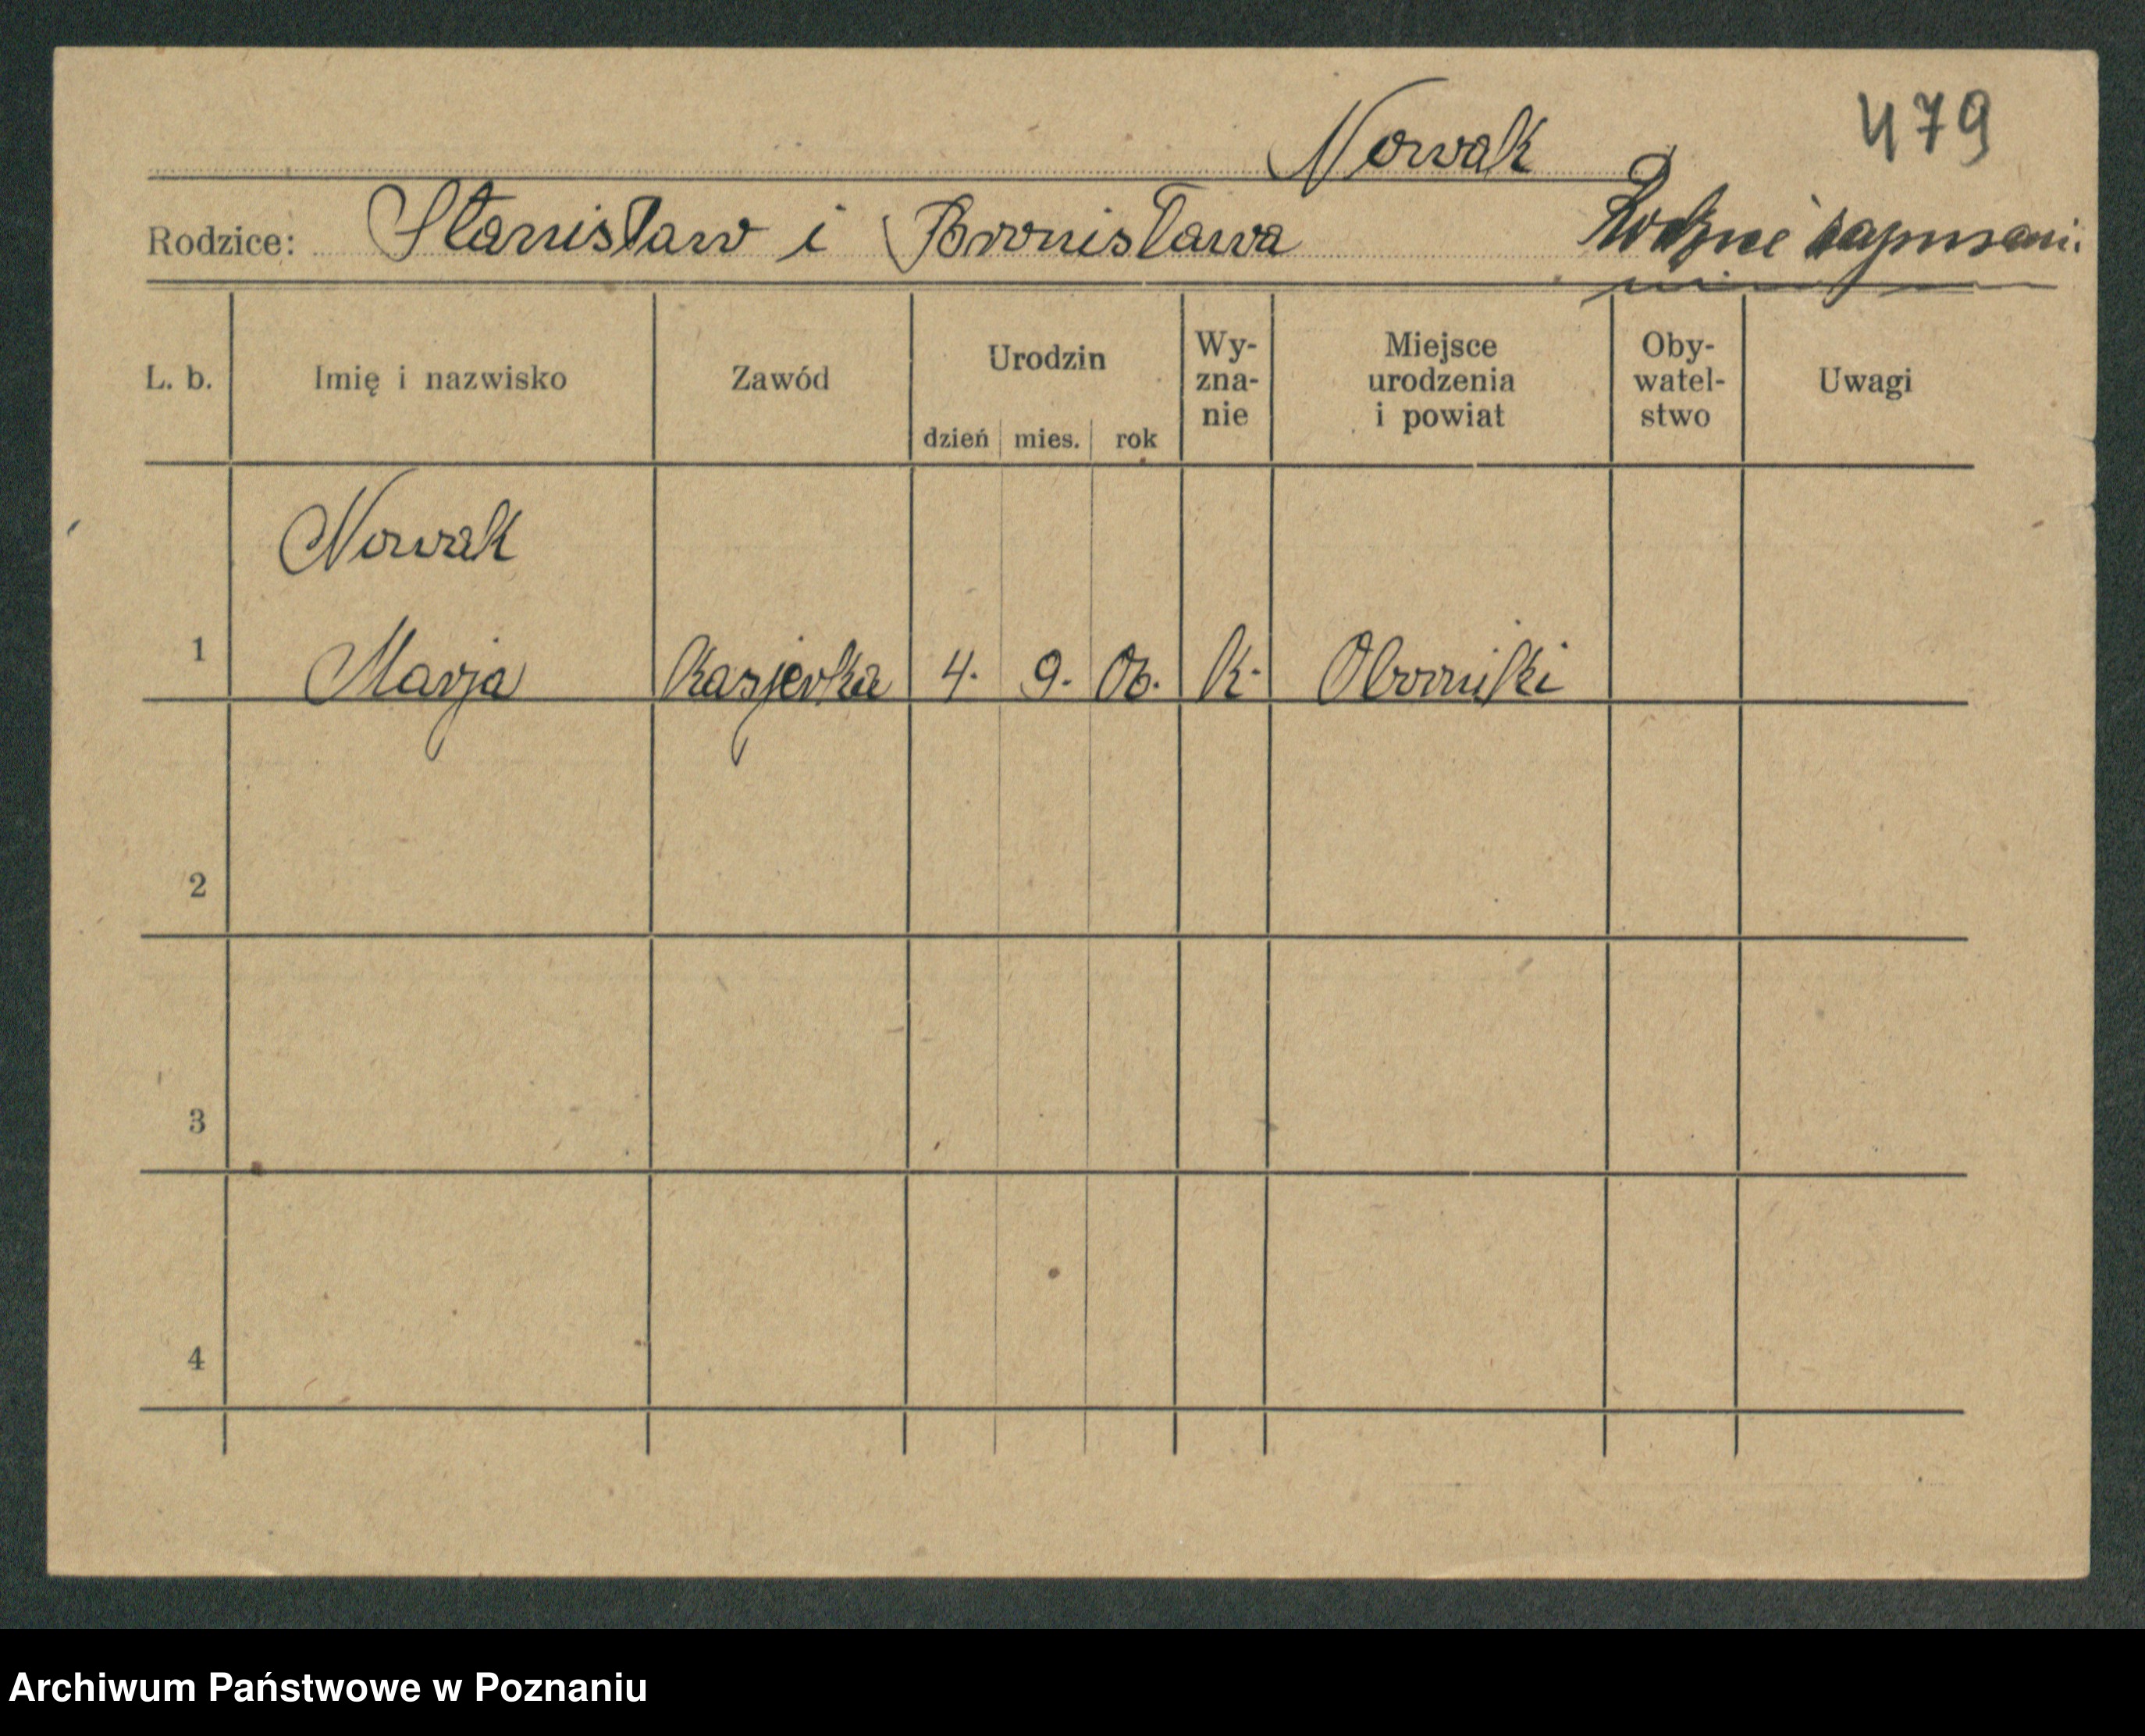 479
Nowak
Rodzice: Stanisław i Bronisława
Rodzice zapisani.
L. b. Imię i nazwisko Zawód Urodzin Wy- Miejsce Oby- Uwagi
zna- urodzenia watel-
nie i powiat stwo
dzień mies. rok
Nowak
1 Marja Kasjerka 4. 9. 06. K. Oborniki
2
3
4
Archiwum Państwowe w Poznaniu